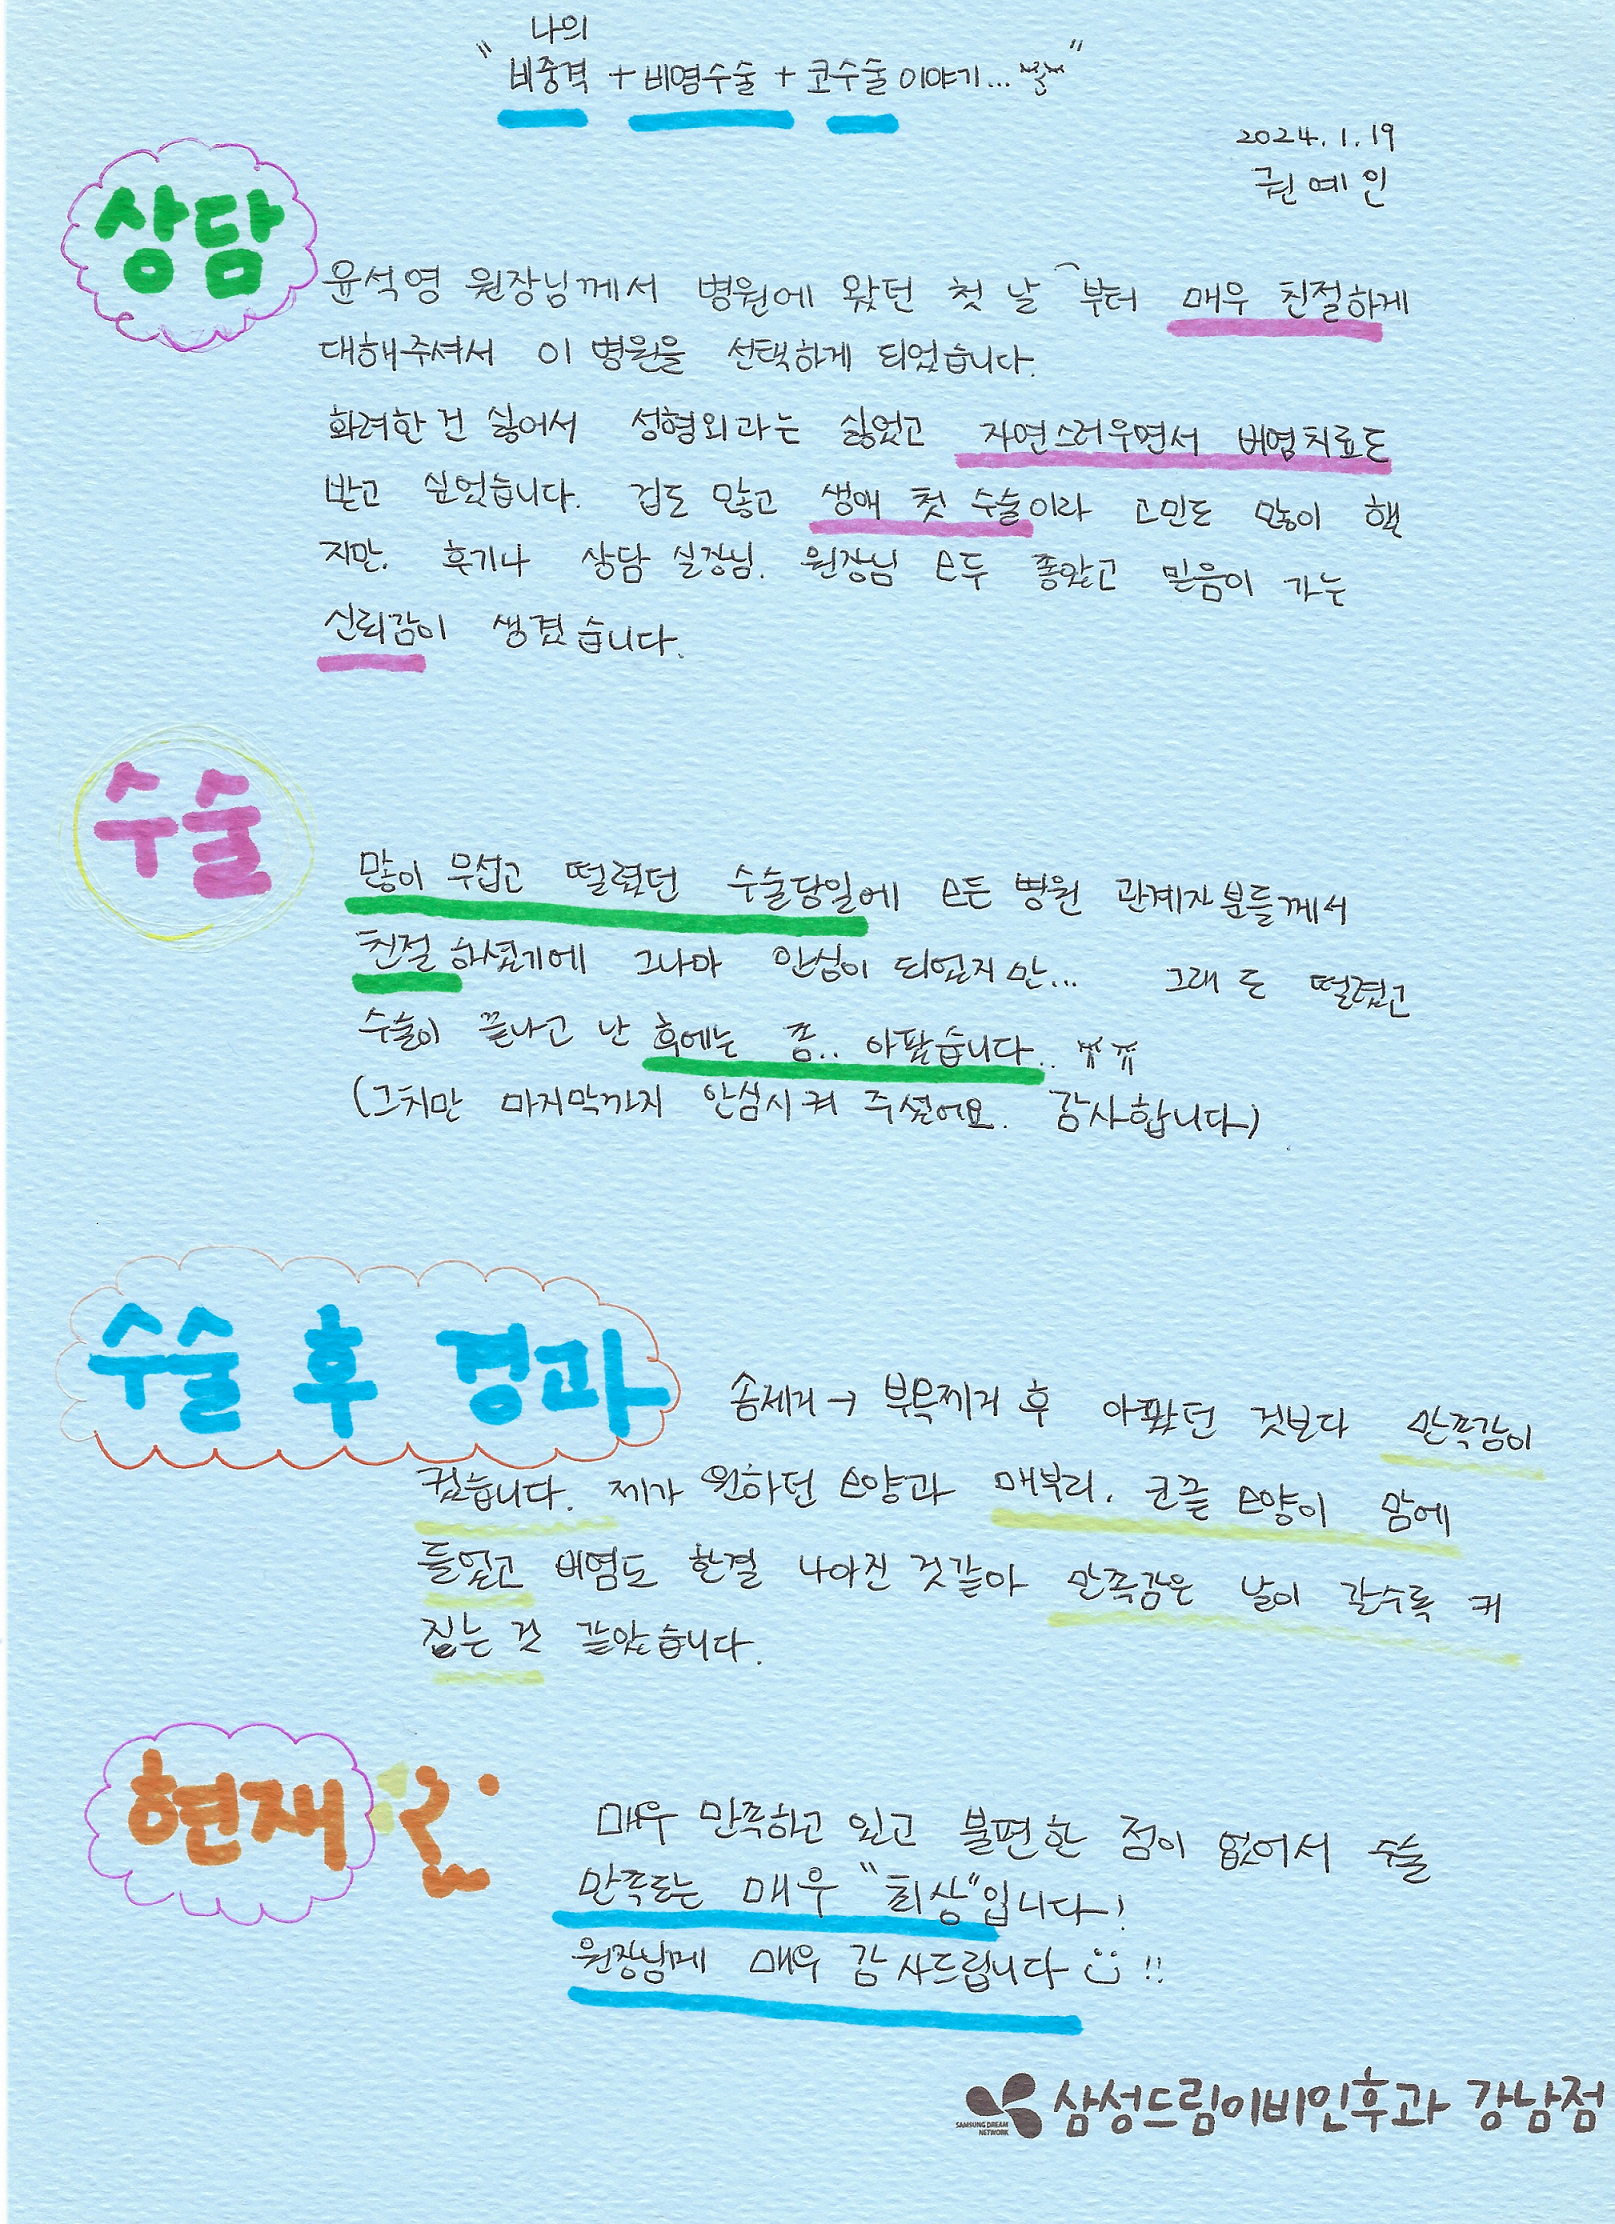 나의
"비중격 + 비염수술 + 코수술 이야기..."
2024. 1. 19
권예인
상담
윤석영 원장님께서 병원에 왔던 첫 날 부터 매우 친절하게
대해주셔서 이 병원을 선택하게 되었습니다.
화려한 건 싫어서 성형외과는 싫었고 자연스러우면서 비염치료도
받고 싶었습니다. 겁도 많고 생애 첫 수술이라 고민도 많이 했
지만, 후기나 상담 실장님, 원장님 모두 좋았고 믿음이 가는
신뢰감이 생겼습니다.
수술
많이 무섭고 떨렸던 수술당일에 모든 병원 관계자분들께서
친절하셨기에 그나마 안심이 되었지만... 그래도 떨렸고
수술이 끝나고 난 후에는 좀.. 아팠습니다.. ㅠㅠ
(그치만 마지막까지 안심시켜 주셨어요. 감사합니다)
수술 후 경과
솜제거 → 부목제거 후 아팠던 것보다 만족감이
컸습니다. 제가 원하던 모양과 매부리, 코끝 모양이 맘에
들었고 비염도 한결 나아진 것같아 만족감은 날이 갈수록 커
지는 것 같았습니다.
현재
매우 만족하고 있고 불편한 점이 없어서 수술
만족도는 매우 "최상"입니다!
원장님께 매우 감사드립니다 !!
SAMSUNG DREAM
NETWORK
삼성드림이비인후과 강남점